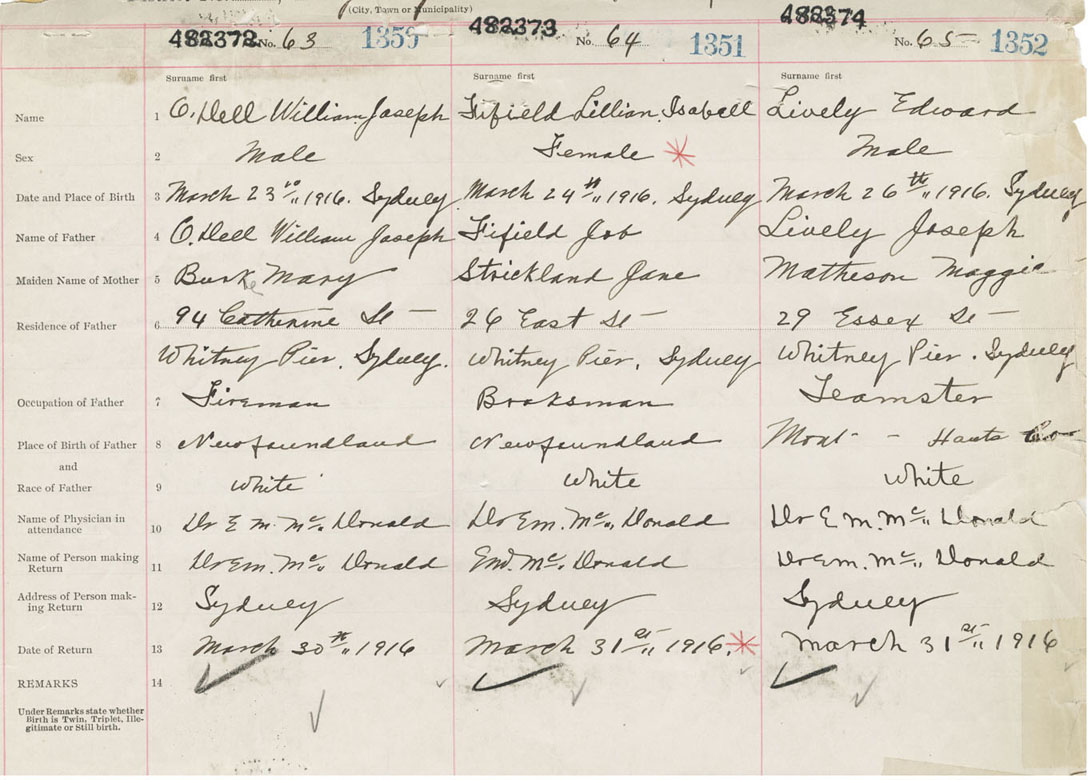 (City, Town or Municipality)
482372 No. 63 1350 482373 No. 64 1351 482374 No. 65 1352
Surname first Surname first Surname first
Name 1 O.Dell William Joseph Fifield Lillian Isabell Lively Edward
Sex 2 Male Female Male
Date and Place of Birth 3 March 23rd 1916. Sydney March 24th 1916. Sydney March 26th 1916. Sydney
Name of Father 4 O.Dell William Joseph Fifield Job Lively Joseph
Maiden Name of Mother 5 Burke Mary Strickland Jane Matheson Maggie
Residence of Father 6 94 Catherine St — 26 East St — 29 Essex St —
Whitney Pier. Sydney. Whitney Pier. Sydney Whitney Pier. Sydney
Occupation of Father 7 Fireman Braksman Teamster
Place of Birth of Father 8 Newfoundland Newfoundland Mont - Hants Co
and
Race of Father 9 White White White
Name of Physician in 10 Dr E M. Mc Donald Dr Em. Mc Donald Dr E M. Mc Donald
attendance
Name of Person making 11 Dr Em. Mc Donald Em. Mc Donald Dr Em. Mc Donald
Return
Address of Person mak- 12 Sydney Sydney Sydney
ing Return
Date of Return 13 March 30th 1916 March 31st 1916. March 31st 1916
REMARKS 14
Under Remarks state whether
Birth is Twin, Triplet, Ille-
gitimate or Still birth.